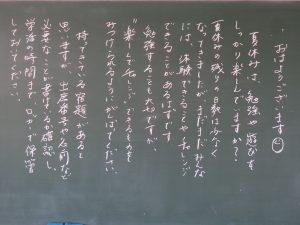 おはようございます
夏休みは、勉強や遊びを
しっかり楽しんでますか？
夏休みの残りの日数は少なく
なってきましたが、まだまだみんな
には、体験できることやチャレンジ
できることがあるはずです
勉強することも大切ですが、
楽しんでチャレンジできるものを
みつけられるようにがんばってください。
持ってきている宿題があると
思いますが、出席番号や名前など
必要なことが書けているか確認し、
学活の時間まで、ロッカーで保管
しておいてください。